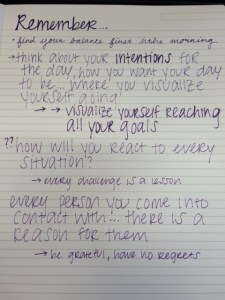 Remember...
• find your balance first in the morning
→ think about your intentions for
the day, how you want your day
to be... where you visualize
yourself going
→ → visualize yourself reaching
all your goals
?? how will you react to every
situation?
→ every challenge is a lesson
every person you come into
contact with... there is a
reason for them
→ be grateful, have no regrets